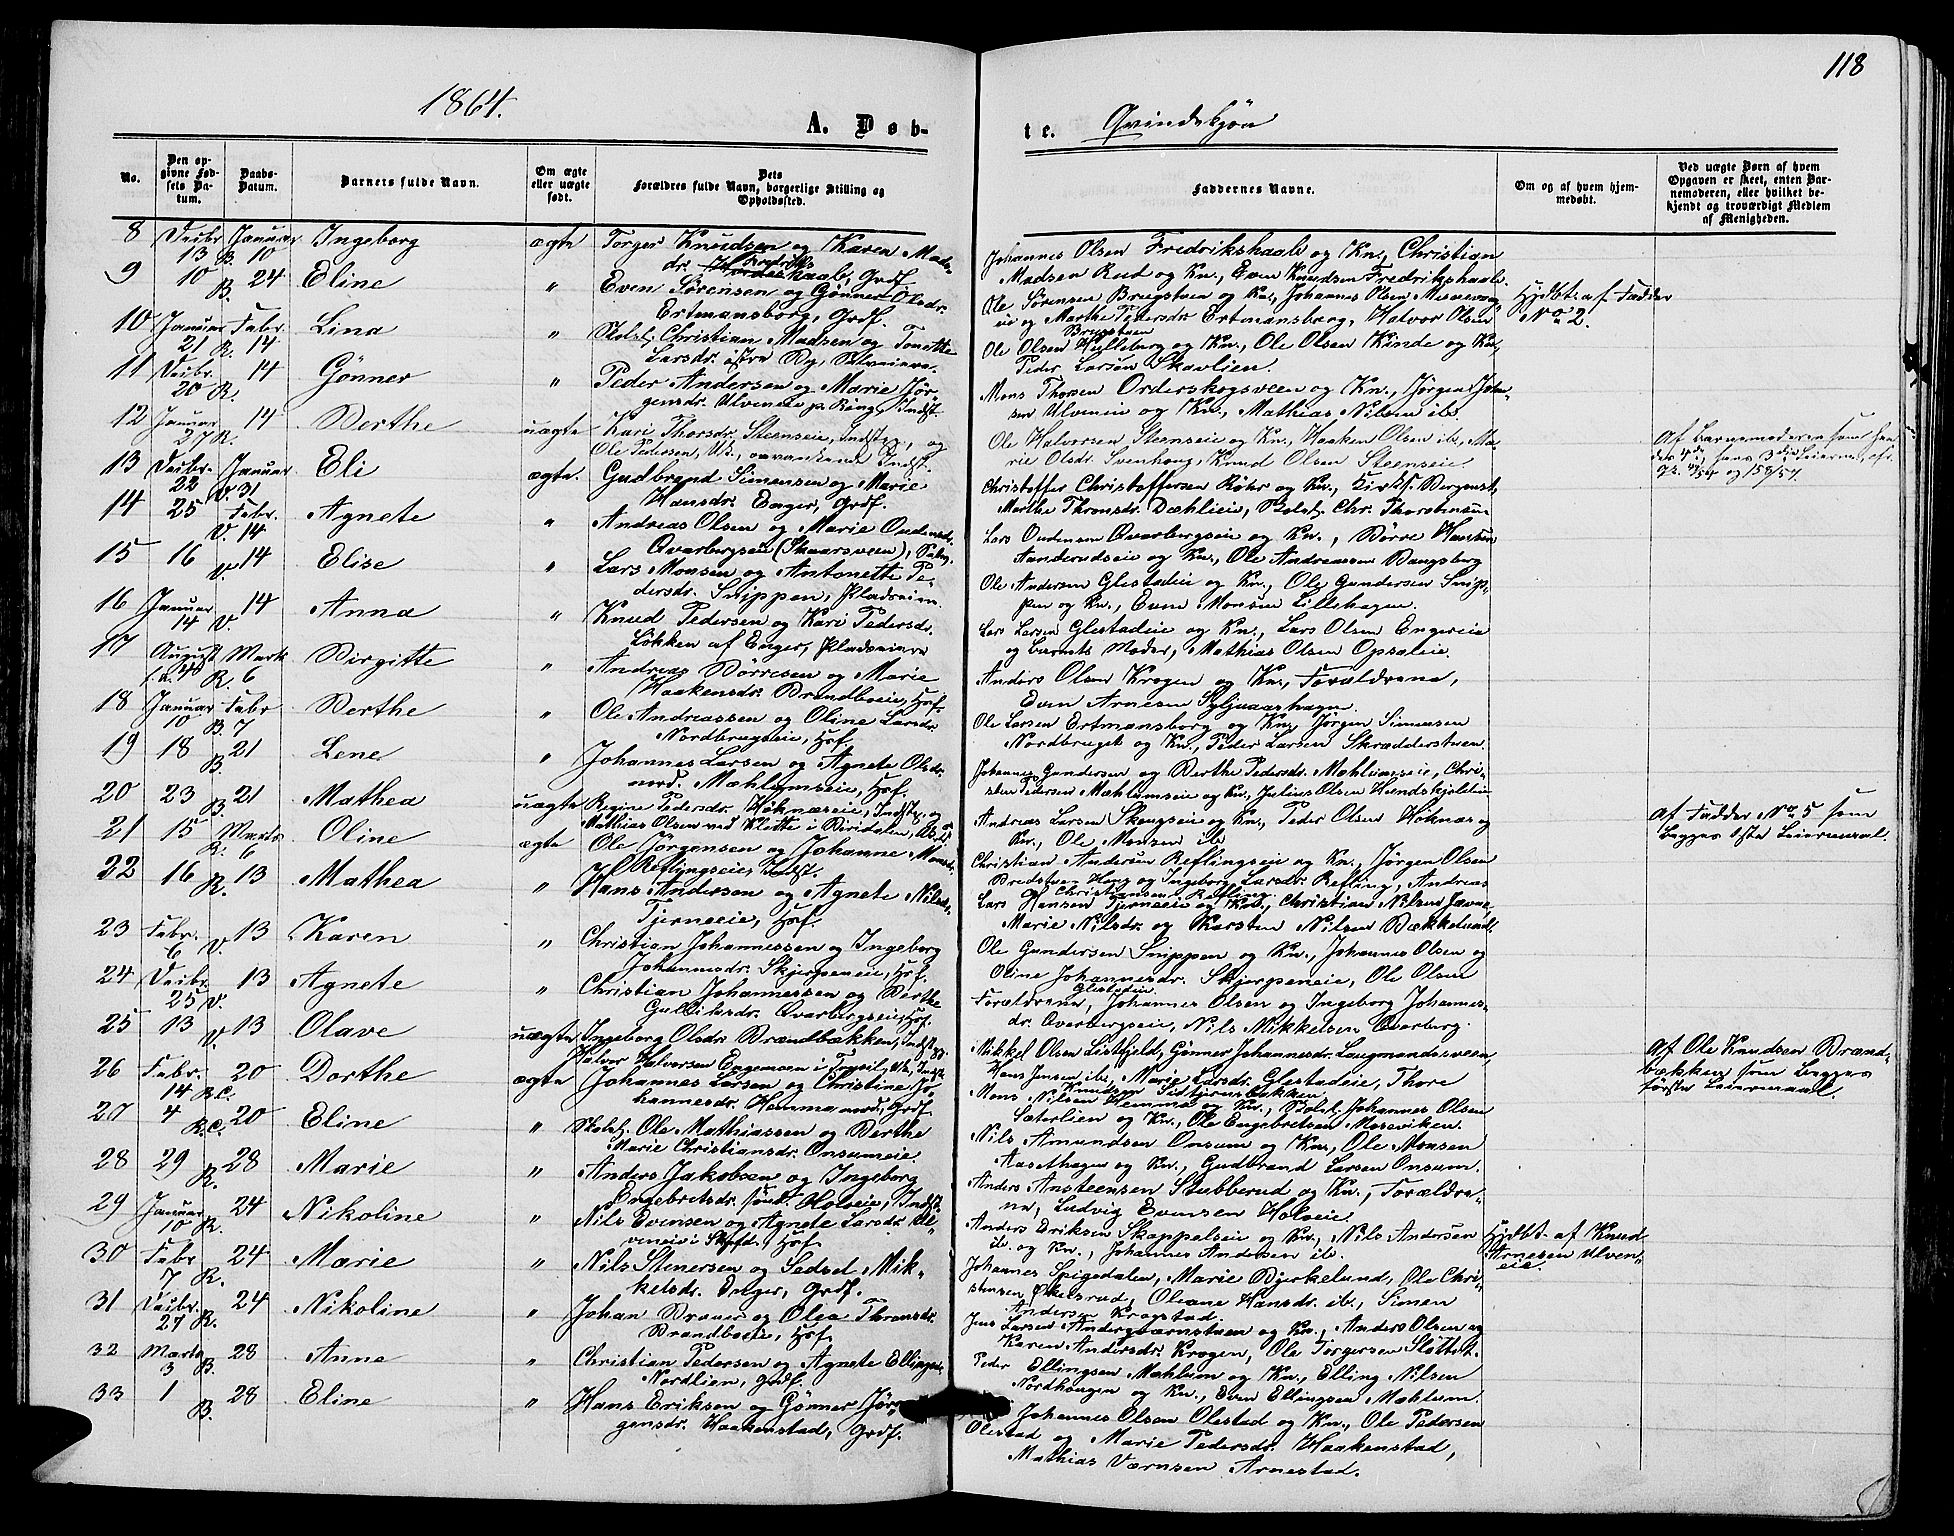 118
1864.
A. Døb-
te. Qvindekjøn
No.
Den opgivne Fødsels Datum.
Daabs-Datum.
Barnets fulde Navn.
Om ægte eller uægte født.
Dets Forældres fulde Navn, borgerlige Stilling og Opholdssted.
Faddernes Navne.
Om og af hvem hjemmedøbt.
Ved uægte Børn af hvem Opgaven er skeet, enten Barnemoderen, eller hvilket bekjendt og troværdigt Medlem af Menigheden.
8 Decbr. 13 Januar B. 10 Ingeborg ægte Torger Knudsen og Karen Mads-
dr. Fredrikshaab, Grdf.
Johannes Olsen Fredrikshaab og Kn., Christian
Madsen Rud og Kn., Even Knudsen Fredrikshaab.
9 10 B. 24 Eline " Even Sørensen og Gønner Olsdr.
Ertmansborg, Grdf.
Ole Sørensen Brugstuen og Kn., Johannes Olsen
og Marthe Pedersdr. Ertmansborg, Halvor Olsen
Brugstuen
Hjdbt. af Fadder
No. 2.
10 Januar 21 Febr. R. 14 Lina " Christian Madsen og Tonette
Larsdr. østre By, Selveiere.
Ole Olsen Hylleborg og Kn., Ole Olsen Kinde og Kn.,
Peder Larsen Skavlien.
11 Decbr. 20 R. 14 Gønner " Peder Andersen og Marie Jør-
gensdr. Ulveneie p. Ring., Indst.
Mons Thorsen Orderskogsveen og Kn., Jørgen Jen-
sen Ulveneie og Kn., Mathias Nilsen ib.
12 Januar 27 R. 14 Berthe uægte Kari Thorsdr. Steenseie, Indstp., og
Ole Pedersen, Uk., omvankende Indst.
Ole Halvorsen Steenseie og Kn., Haaken Olsen ib., Ma-
rie Olsdr. Svenhoug, Knud Olsen Steenseie.
Af Barnemoderen som hen-
des 4de, hans 3die Leierm.
13 Decbr. 22 Januar V. 31 Eli ægte Gudbrand Simensen og Marie
Hansdr. Enger, Grdf.
Christoffer Christoffersen Røhr og Kn.,
Marthe Thronsdr. Dæhlieie, Chr. Thorstensen
14 25 Febr. V. 14 Agnete " Andreas Olsen og Marie Oudensdr.
Qvarbergseie (Skaarsveen),
Lars Oudensen Qvarbergseie og Kn., Børre Hansen
Aanerudseie og Kn., Ole Andreassen Bangsberg
15 16 V. 14 Elise " Lars Monsen og Antonette Pe-
dersdr. Snippen, Pladseiere.
Ole Andersen Glestadeie og Kn., Ole Gundersen Snip-
pen og Kn., Even Monsen Lillehagen.
16 Januar 14 V. 14 Anna " Knud Pedersen og Kari Pedersdr.
Løkken af Enger, Pladseiere
Lars Larsen Glestadeie og Kn., Lars Olsen Engereie
og Barnets Moder, Mathias Olsen Opsaleie.
17 August Marts R. 6 Birgitte " Andreas Børresen og Marie
Haakensdr. Brandboeie, Hsf.
Anders Olsen Krogen og Kn., Forældrene,
Even Arnesen Syljuaashagen.
18 Januar 10 Febr. B. 7 Berthe " Ole Andreassen og Oline Larsdr.
Nordbrugseie, Hsf.
Ole Larsen Ertmansborg og Kn., Jørgen Simensen
Nordbruget og Kn., Peder Larsen Skrædderstuen.
19 18 B. 21 Lene " Johannes Larsen og Agnete Olsdr.
nord. Mæhlumseie, Hsf.
Johannes Gundersen og Berthe Pedersdr. Mæhlumseie, Chri-
sten Pedersen Mæhlumseie og Kn., Julius Olsen
20 23 B. 21 Mathea uægte Regine Pedersdr. Høknæseie, Indstp., og
Mathias Olsen ved Klette i Biridalen,
Andreas Larsen Skougseie og Kn., Peder Olsen Høknæs og
Kn., Ole Monsen ib.
Af Fadder No. 5 som
Begges 1ste Leiermaal.
21 15 Marts R. 6 Oline ægte Ole Jørgensen og Johanne Monsdr.
Reflingseie, Indst.
Christian Andersen Reflingseie og Kn., Jørgen Olsen
Bredstuen Houg og Ingeborg Larsdr. Refling, Andreas
Christiansen Refling
22 16 R. 13 Mathea " Hans Andersen og Agnete Nilsdr.
Tjerneeie, Hsf.
Lars Hansen Tjerneeie og Kn., Christian Nilsen
Marie Nilsdr. og Karsten Nilsen Bækkelund.
23 Febr. 6 V. 13 Karen " Christian Johannessen og Ingeborg
Johannesdr. Skjerpeneie, Hsf.
Ole Gundersen Snippen og Kn., Johannes Olsen og
Oline Johannesdr. Skjerpeneie, Ole Olsen
Glestadeie
24 Decbr. 25 V. 13 Agnete " Christian Johannessen og Berthe
Gulliksdr. Qvarbergseie, Hsf.
Forældrene, Johannes Olsen og Ingeborg Johannes-
dr. Qvarbergseie, Nils Mikkelsen Qvarberg.
25 13 V. 13 Olave uægte Ingeborg Olsdr. Brændbækken, Indstp. og
Halvor Halvorsen Engemoen i Trysil,
Mikkel Olsen Listfjeld, Gønner Johannesdr. Laugmandsveen,
Hans Jensen ib., Marie Larsdr. Glestadeie, Thore
Knudsen
Af Ole Knudsen Brænd-
bækken som Begges
første Leiermaal.
26 Febr. 14 R.C. 20 Dorthe ægte Johannes Larsen og Christine Jo-
hannesdr. Hemma nord., Grdf.
Mons Nilsen Hemma og Kn., Johannes Olsen
Sæterlien og Kn., Ole Engebretsen Moseviken.
27 4 R.C. 20 Eline " Ole Mathiassen og Berthe
Marie Christiansdr. Onsumeie.
Nils Amundsen Onsum og Kn., Ole Monsen
Aasethagen og Kn., Gudbrand Larsen Onsum.
28 29 R. 28 Marie " Anders Jakobsen og Ingeborg
Engebretsdr. Holveie, Indst.
Anders Ansteensen Stubberud og Kn., Forældre-
ne, Ludvig Evensen Holveie.
29 Januar 10 R. 24 Nikoline " Nils Evensen og Agnete Larsdr. Ul-
veneie i Skafd., Hsf.
Anders Eriksen Skappelseie og Kn., Nils Andersen
ib. og Kn., Johannes Andersen ib.
Hjdbt. af Knud
Arnesen Ulven-
eie.
30 Febr. 7 R. 24 Marie " Nils Stenersen og Sedsel Mik-
kelsdr. Enger, Grdf.
Johannes Spigedalen, Marie Bjerkelund, Ole Chri-
stensen Økelsrud, Oleane Hansdr. ib., Simen
Andersen Krogstad.
31 Decbr. 27 R. 24 Nikoline " Johan Braner og Olea Thronsdr.
Brandboeie, Hsf.
Jens Larsen Andergaarnstuen og Kn., Anders Olsen og
Karen Andersdr. Krogen, Ole Torgersen Slottet.
32 Marts 3 B. 28 Anne " Christian Pedersen og Agnete Ellingsdr.
Nordlien, Grdf.
Peder Ellingsen Mæhlum og Kn., Elling Nilsen
Nordhougen og Kn., Even Ellingsen Mæhlum.
33 1 B. 28 Eline " Hans Eriksen og Gønner Jør-
gensdr. Haakenstad, Grdf.
Johannes Olsen Olestad og Kn., Ole Pedersen
Olestad og Marie Pedersdr. Haakenstad,
Mathias Værnsen Arnestad.